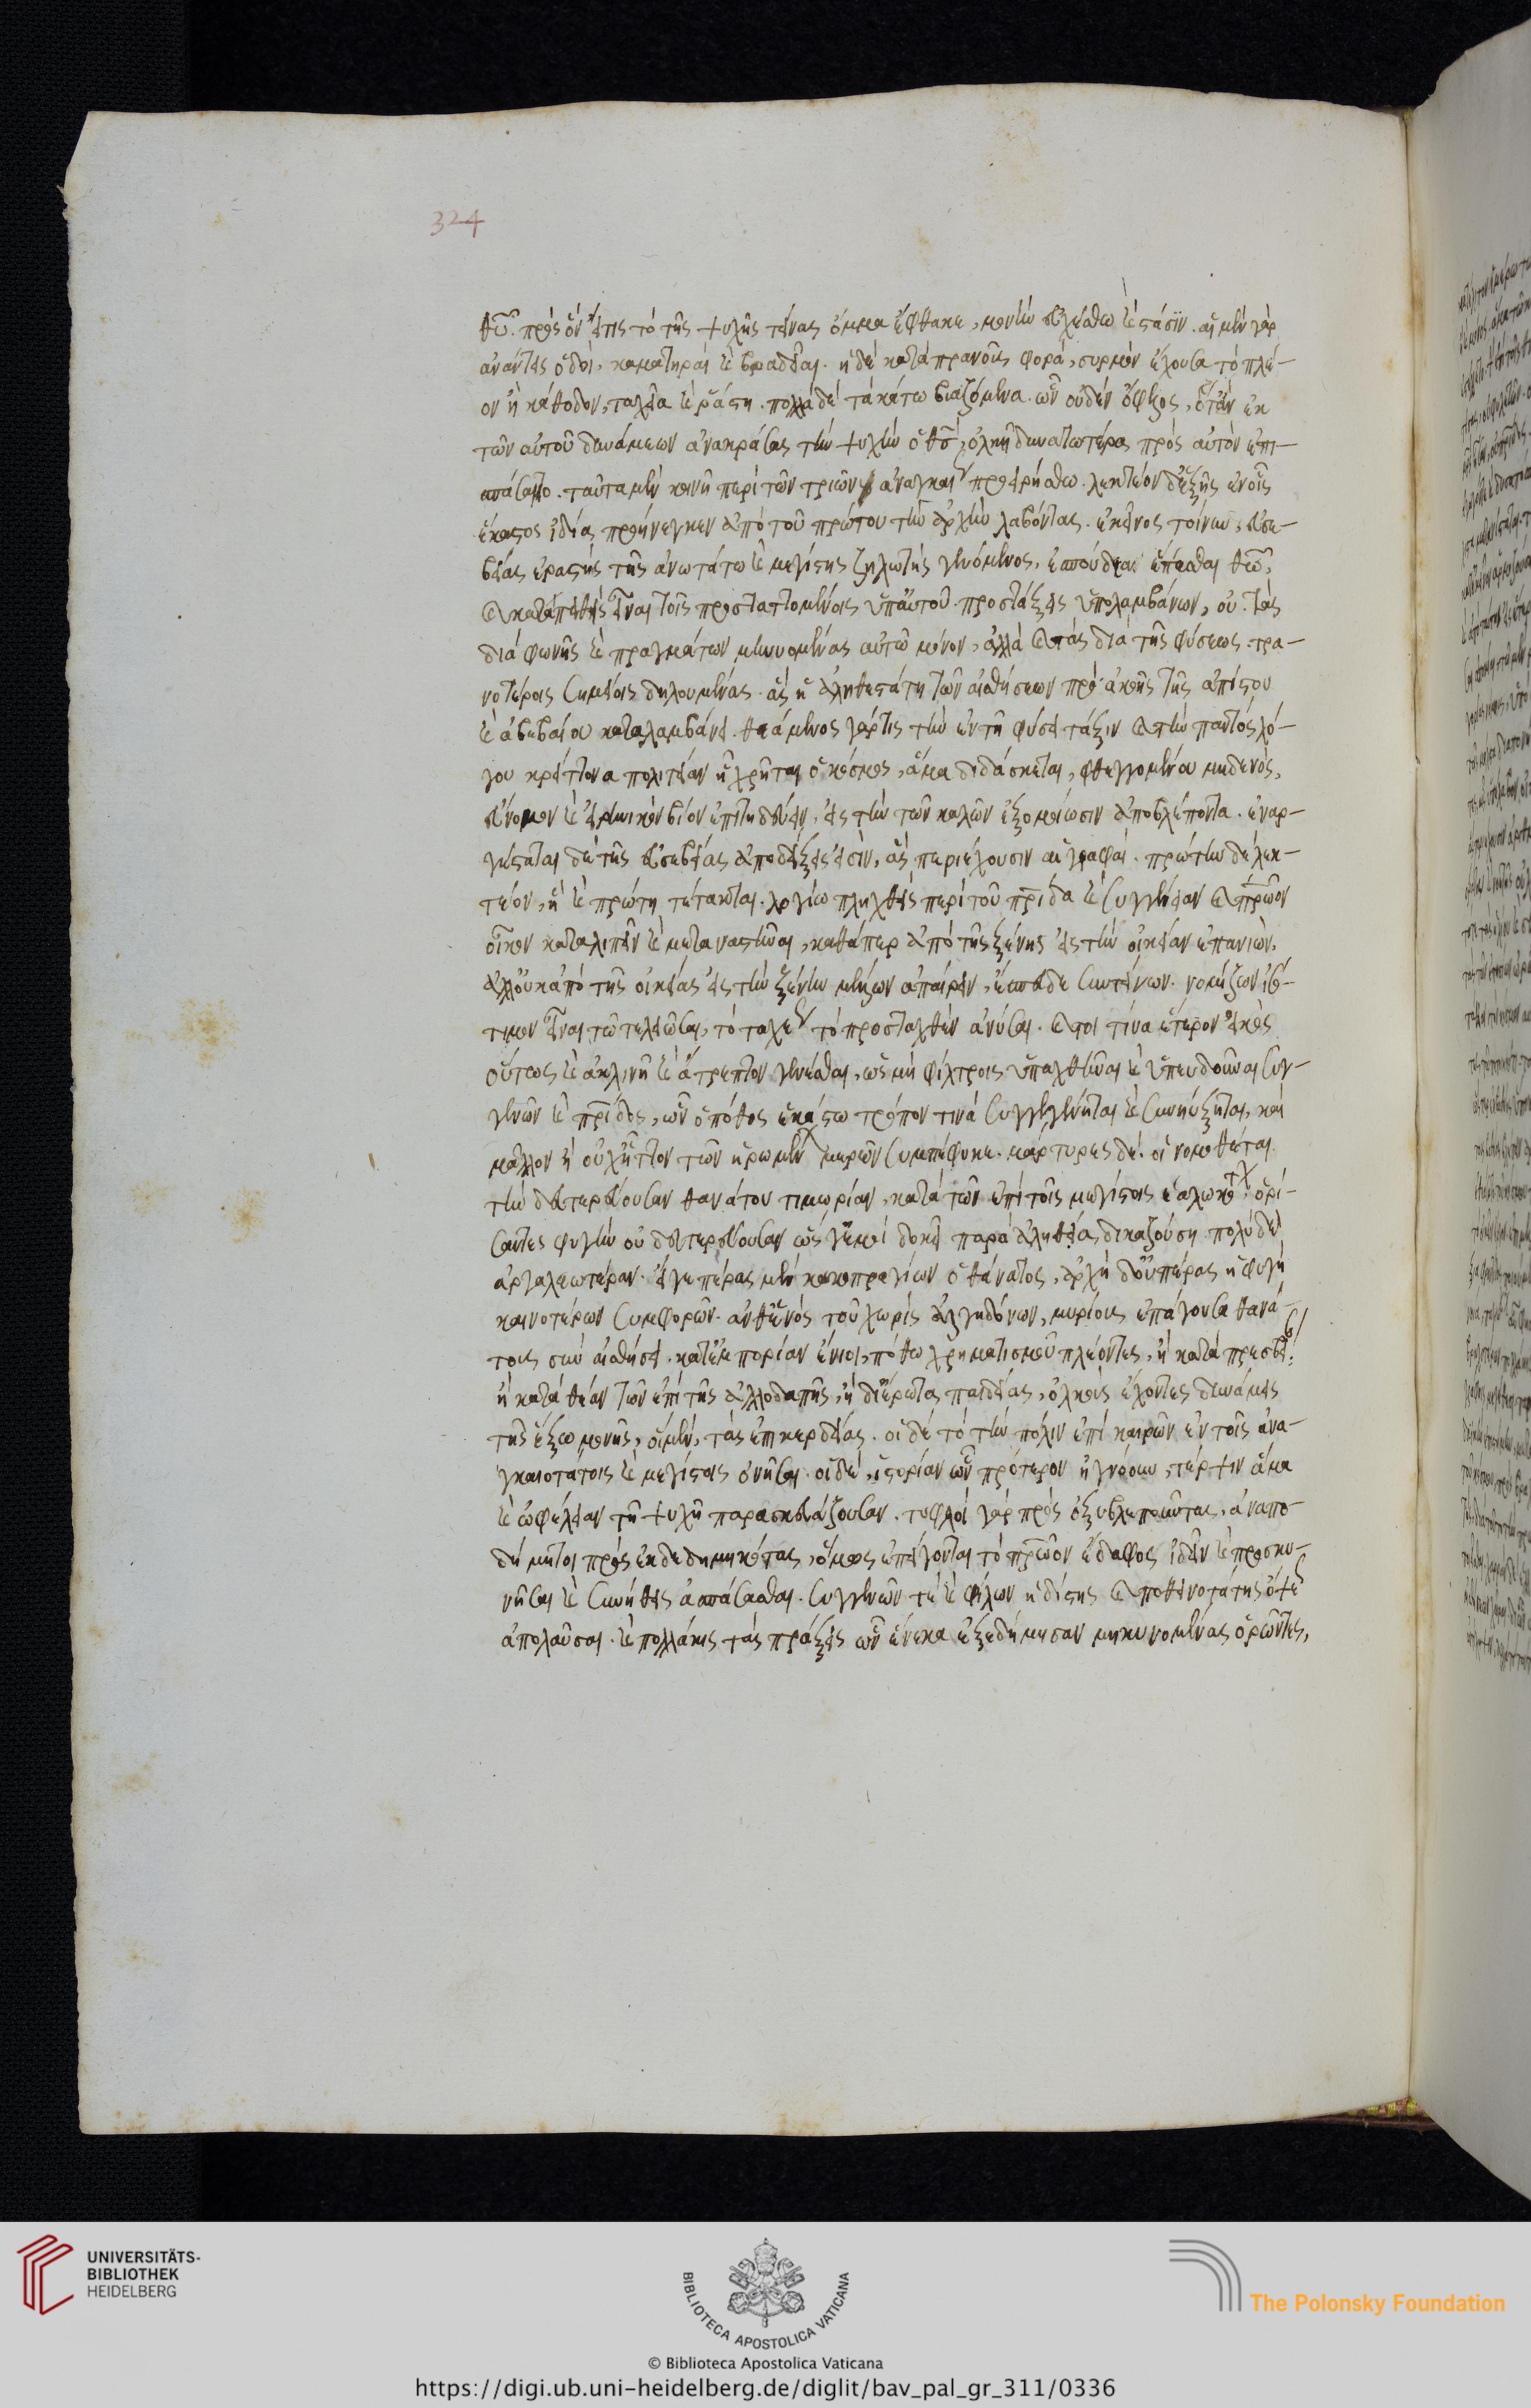 324
θῶ. πρὸς ὃν εἴ τις τὸ τῆς ψυχῆς τείνας ὄμμα ἔφθακε, μονὴν εὐχέσθω καὶ στάσιν. αἱ μὲν γὰρ
ἀνάντεις ὁδοὶ, καματηραὶ καὶ βραδεῖαι. ἡ δὲ κατὰ πρανοῦς φορά, συρμὸν ἔχουσα τὸ πλέ-
ον ἢ κάθοδον, ταχεῖα καὶ ῥάστη. πολλὰ δὲ τὰ κάτω βιαζόμενα. ὧν οὐδὲν ὄφελος, ὅταν ἐκ
τῶν αὐτοῦ δυνάμεων ἀνακράσας τὴν ψυχὴν ὁ θς, ὁλκῆ δυνατωτέρα πρὸς αὐτὸν ἐπι-
σπάσαιτο. ταῦτα μὲν κοινῆ περὶ τῶν τριῶν ἀναγκαίως προειρήσθω. λεκτέον δ' ἑξῆς ἐν οἷς
ἕκαστος ἰδία προήνεγκεν ἀπὸ τοῦ πρώτου τὴν ἀρχὴν λαβόντας. ἐκεῖνος τοίνυν, εὐσε-
βείας ἐραστὴς τῆς ἀνωτάτω καὶ μεγίστης ζηλωτὴς γενόμενος, ἐσπούδασεν ἕπεσθαι θῶ,
καὶ καταπειθὴς εἶναι τοῖς προσταττομένοις ὑπ' αὐτοῦ. προστάξεις ὑπολαμβάνων, οὐ τὰς
διὰ φωνῆς καὶ πραγμάτων μηνυομένας αὐτῶ μόνον, ἀλλὰ καὶ τὰς διὰ τῆς φύσεως τρα-
νοτέροις σημείοις δηλουμένας. ἃς ἡ ἀληθεστάτη τῶν αἰσθήσεων πρὸ ἀκοῆς τῆς ἀπίστου
καὶ ἀβεβαίου καταλαμβάνει. θεάμενος γάρ τις τὴν ἐν τῆ φύσει τάξιν καὶ τὴν παντὸς λό-
γου κρείττονα πολιτείαν ἧ χρῆται ὁ κόσμος, ἅμα διδάσκεται, φθεγγομένου μηδενὸς,
εὔνομον καὶ εἰρηνικὸν βίον ἐπιτηδεύειν, εἰς τὴν τῶν καλῶν ἐξομοίωσιν ἀποβλέποντα. ἐναρ-
γέσταται δὲ τῆς εὐσεβείας ἀποδείξεις εἰσὶν, ἃς περιέχουσιν αἱ γραφαί. πρώτην δὲ λεκ-
τέον, ἣ καὶ πρώτη τέτακται. λογίω πληχθεὶς περὶ τοῦ πρίδα καὶ συγγένειαν καὶ πρῶον
οἶκον καταλιπεῖν καὶ μεταναστῆναι, καθάπερ ἀπὸ τῆς ξένης εἰς τὴν οἰκείαν ἐπανιὼν,
ἀλλ' οὐκ ἀπὸ τῆς οἰκείας εἰς τὴν ξένην μέλλων ἀπαίρειν, ἔσπευδε συντείνων. νομίζων ἰσό-
τιμον εἶναι τῶ τελειῶσαι, τὸ ταχέως τὸ προσταχθὲν ἀνύσαι. καίτοι τίνα ἕτερον εἰκὸς
οὕτως καὶ ἀκλινῆ καὶ ἄτρεπτον γενέσθαι, ὡς μὴ φίλτροις ὑπαχθῆναι καὶ ὑπενδοῦναι συγ-
γενῶν καὶ πρίδος, ὧν ὁ πόθος ἑκάστω τρόπον τινὰ συγγεγένηται καὶ συνηύξηται, καὶ
μᾶλλον ἢ οὐχ ἧττον τῶν ἡνωμένων μερῶν συμπέφυκε. μάρτυρες δὲ οἱ νομοθέται
τὴν δευτερεύουσαν θανάτου τιμωρίαν, κατὰ τῶν ἐπὶ τοῖς μεγίστοις ἑαλωκότων ὁρί-
σαντες φυγὴν οὐ δευτερεύουσαν ὥς γέ μοι δοκεῖ παρὰ ἀληθεία δικαζούση πολὺ δὲ
ἀργαλεωτέραν. εἴγε πέρας μὲν κακοπραγίων ὁ θάνατος, ἀρχὴ δ' οὐ πέρας ἡ φυγὴ
καινοτέρων συμφορῶν. ἀνθ' ἑνὸς τοῦ χωρὶς ἀλγηδόνων, μυρίους ἐπάγουσα θανά-
τους σὺν αἰσθήσει. κατ' ἐμπορίαν ἔνιοι, πόθω χρηματισμοῦ πλέοντες, ἢ κατὰ πρεσβείαν
ἢ κατὰ θέαν τῶν ἐπὶ τῆς ἀλλοδαπῆς, ἢ δι' ἔρωτα παιδείας, ὁλκοὺς ἔχοντες δυνάμεις
τῆς ἔξω μονῆς, οἱ μὲν, τὰς ἐπικερδείας. οἱ δὲ τὸ τὴν πόλιν ἐπὶ καιρῶν ἐν τοῖς ἀνα-
γκαιοτάτοις καὶ μεγίστοις ὀνῆσαι. οἱ δὲ, ἱστορίαν ὧν πρότερον ἠγνόουν, τέρψιν ἅμα
καὶ ὠφέλειαν τῆ ψυχῆ παρασκευάζουσαν. τυφλοὶ γὰρ πρὸς ὀξυβλεποῦντας, ἀναπο-
δήμητοι πρὸς ἐκδεδημηκότας, ὅμως ἐπείγονται τὸ πρῶον ἔδαφος ἰδεῖν καὶ προσκυ-
νῆσαι καὶ συνήθεις ἀσπάσασθαι. συγγενῶν τὲ καὶ φίλων ἡδίστης καὶ ποθεινοτάτης ὄψεως
ἀπολαῦσαι. καὶ πολλάκις τὰς πράξεις ὧν ἕνεκα ἐξεδήμησαν μηκυνομένας ὁρῶντες,
UNIVERSITÄTS-
BIBLIOTHEK
HEIDELBERG
BIBLIOTECA APOSTOLICA VATICANA
The Polonsky Foundation
© Biblioteca Apostolica Vaticana
https://digi.ub.uni-heidelberg.de/diglit/bav_pal_gr_311/0336